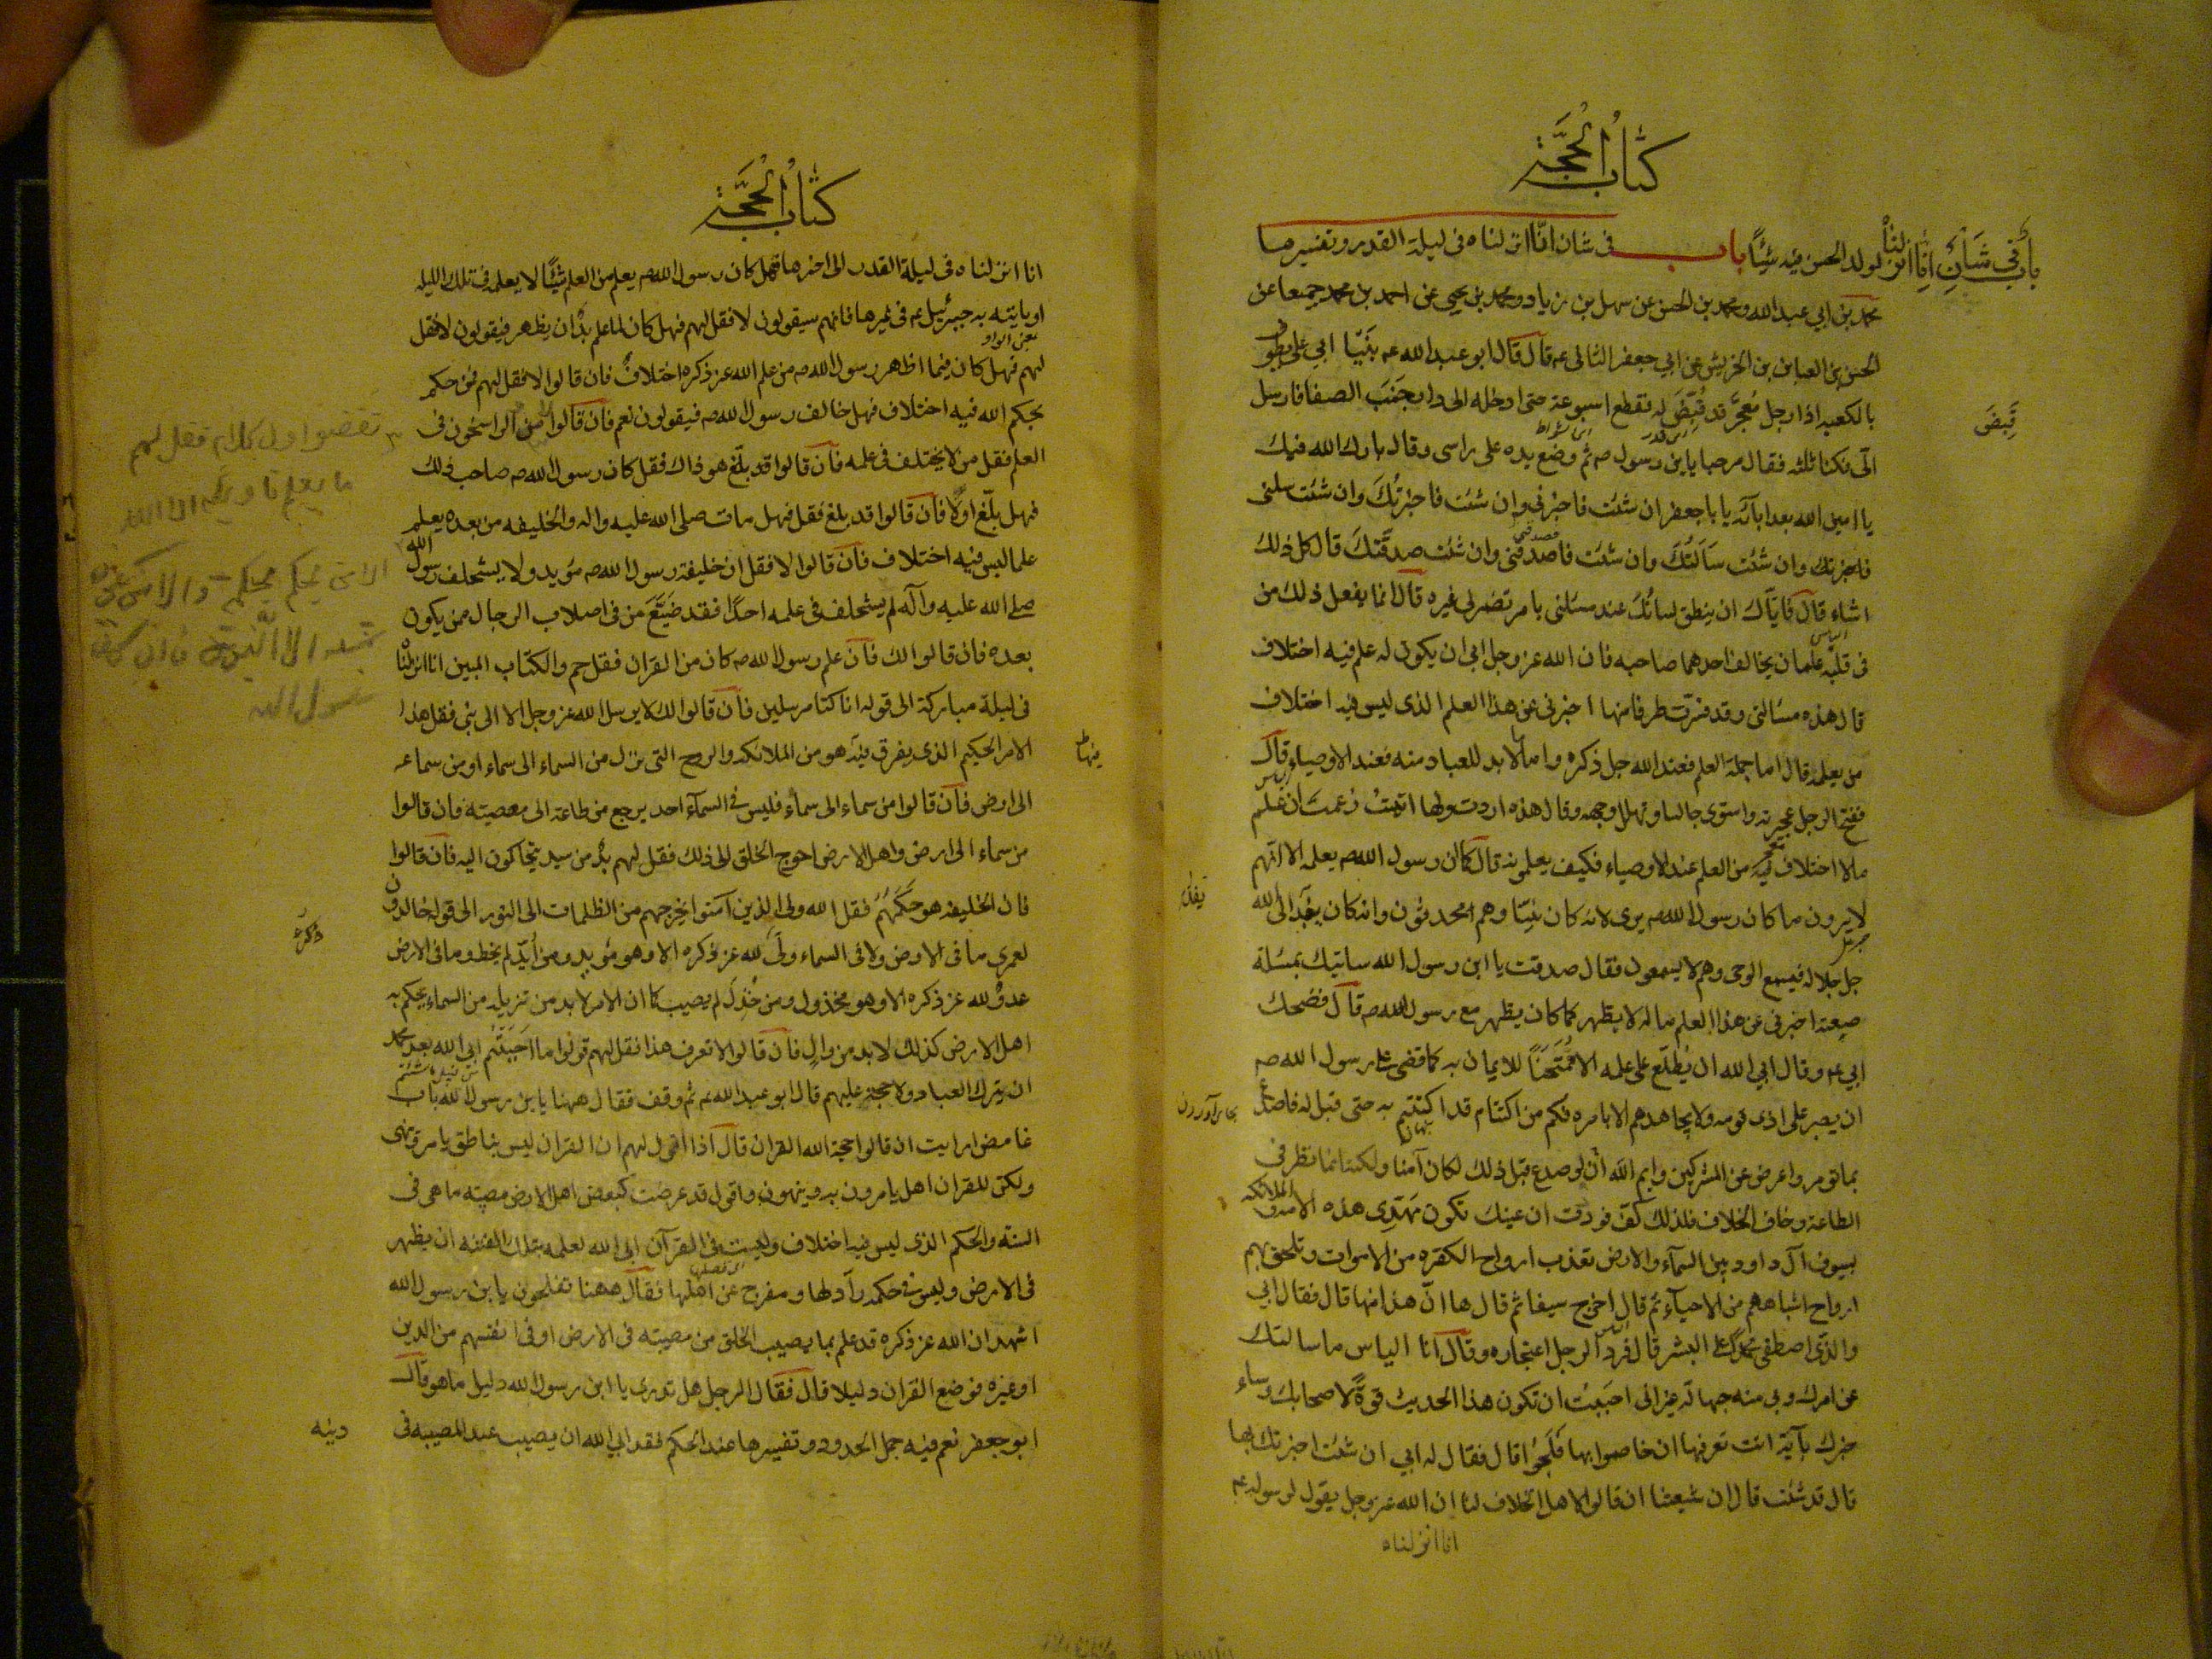 كتاب الحجة
باب في شان انا انزلناه
لولد الحسن فيه شيئا باب في شان انا انزلناه فى ليلة القدر وتفسيرها
محمد بن ابي عبد الله ومحمد بن الحسن عن سهل بن زياد ومحمد بن يحيى عن احمد بن محمد جميعا عن
الحسن بن العباس بن الحريش عن ابي جعفر الثانى ع قال قال ابو عبد الله ع بينا ابي ع يطوف
بالكعبه اذا رجل معتجر قد قيض له فقطع اسبوعه حتى ادخله الى دار بجنب الصفا فارسل
الى فكنا ثلثه فقال مرحبا يا بن رسول ص ثم وضع يده على راسى وقال بارك الله فيك
يا امين الله بعد ابآئه يا با جعفر ان شئت فاخبرنى وان شئت فاخبرتك وان شئت سلنى
فاخبرتك وان شئت سالتك وان شئت فاصدقنى وان شئت صدقتك قال كل ذلك
اشاء قال فاياك ان ينطق لسانك عند مسئلتى بامر تضمر لي غيره قال انما يفعل ذلك من
فى قلبه علمان يخالف احدهما صاحبه فان الله عز وجل ابى ان يكون له علم فيه اختلاف
قال هذه مسالتى وقد فسرت طرفا منها اخبرنى عن هذا العلم الذى ليس فيه اختلاف
من يعلمه قال اما جملة العلم فعند الله جل ذكره واما ما لا بد للعباد منه فعند الاوصياء قال
ففتح الرجل عجيرته واستوى جالسا وتهلل وجهه وقال هذه اردت ولها اتيت زعمت ان علم
ما لا اختلاف فيه من العلم عند الاوصياء فكيف يعلمونه قال كما كان رسول الله ص يعلمه الا انهم
لا يرون ما كان رسول الله ص يرى لانه كان نبيا وهم محدثون وانه كان يفد الى الله
جل جلاله فيسمع الوحى وهم لا يسمعون فقال صدقت يا ابن رسول الله ساتيك بمسئلة
صعبة اخبرنى عن هذا العلم ماله لا يظهر كما كان يظهر مع رسول الله ص قال فضحك
ابي ع وقال ابى الله ان يطلع على علمه الا ممتحنا للايمان به كما قضى على رسول الله ص
ان يصبر على اذى قومه ولا يجاهدهم الا بامره فكم من اكتتام قد اكتتم به حتى قيل له فاصدع
بما تومر واعرض عن المشركين وايم الله ان لو صدع قبل ذلك لكان آمنا ولكنه انما نظر فى
الطاعة وخاف الخلاف فلذلك كف فوددت ان عينك تكون مهدى هذه الامة والملائكه
بسيوف آل داود بين السمآء والارض تعذب ارواح الكفره من الاموات وتلحق بهم
ارواح اشباههم من الاحيآء ثم قال اخرج سيفا ثم قال ها ان هذا منها قال فقال ابي
والذى اصطفى محمدا على البشر قال فرد الرجل اعتجاره وقال انا الياس ما سالتك
عن امرك وبي منه جهالة غير انى احببت ان تكون هذا الحديث قوة لاصحابك وساء
خبرك بآية انت تعرفها ان خاصموا بها فلجوا قال فقال له ابي ان شئت اخبرتك بها
قال قد شئت قال ان شيعتنا ان قالوا لاهل الخلاف لنا ان الله عز وجل يقول لرسوله ع
انا انزلناه
كتاب الحجة
انا انزلناه فى ليلة القدر الى اخرها فهل كان رسول الله ص يعلم من العلم شيئا لا يعلمه في تلك الليله
او ياتيه به جبرئيل ع فى غيرها فانهم سيقولون لا فقل لهم فهل كان لما علم بد ان يظهر فيقولون لا فقل
لهم فهل كان فيما اظهر رسول الله ص من علم الله عز ذكره اختلاف فان قالوا لا فقل لهم فمن حكم
بحكم الله فيه اختلاف فهل خالف رسول الله ص فيقولون نعم فان قالوا من الراسخون فى
العلم فقل من لا يختلف فى علمه فان قالوا قد بلغ هو ذاك فقل كان رسول الله ص صاحب ذلك
فهل بلغ اولا فان قالوا قد بلغ فقل فهل مات صلى الله عليه واله والخليفه من بعده يعلم
علما ليس فيه اختلاف فان قالوا لا فقل ان خليفة رسول الله ص مؤيد ولا يستخلف رسول الله
صلى الله عليه وآله لم يستخلف فى علمه احدا فقد ضيع من فى اصلاب الرجال ممن يكون
بعده فان قالوا لك فان علم رسول الله ص كان من القران فقل حم والكتاب المبين انا انزلناه
فى ليلة مباركة الى قوله انا كنا مرسلين فان قالوا لك لا يرسل الله عز وجل الا الى نبى فقل هذا
الامر الحكيم الذى يفرق فيه هو من الملائكه والروح التى تنزل من السماء الى سماء او من سماء
الى ارض فان قالوا من سماء الى سماء فليس في السمآء احد يرجع من طاعة الى معصيته فان قالوا
من سماء الى ارض واهل الارض احوج الخلق الى ذلك فقل لهم بد من سيد يتحاكمون اليه فان قالوا
فان الخليفه هو حكمهم فقل الله ولى الذين آمنوا يخرجهم من الظلمات الى النور الى قوله خالدون
لعمرى ما فى الارض ولا فى السماء ولى لله عز ذكره الا وهو مؤيد ومن ايد لم يخط وما فى الارض
عدو لله عز ذكره الا وهو مخذول ومن خذل لم يصيب كما ان الامر لا بد من تنزيله من السماء يحكم به
اهل الارض كذلك لا بد من وال فان قالوا لا تعرف هذا فقل لهم قولوا ما احببتم ابى الله بعد محمد
ان يترك العباد ولا حجة عليهم قال ابو عبد الله ع ثم وقف فقال ههنا يا بن رسول الله باب
غامض ارايت ان قالوا حجة الله القران قال اذا اقول لهم ان القران ليس بناطق يامر وينهى
ولكن للقران اهل يامرون به وينهون واقول قد عرضت لبعض اهل الارض مصيبة ما هى فى
السنة والحكم الذى ليس فيه اختلاف وليست فى القرآن ابى الله لعلمه بتلك الفتنه ان يظهر
فى الارض وليس في حكمه رآد لها ومفرج عن اهلها فقال ههنا تفلجون يا بن رسول الله
اشهد ان الله عز ذكره قد علم بما يصيب الخلق من مصيبته فى الارض او فى انفسهم من الدين
او غيره فوضع القران دليلا قال فقال الرجل هل تدرى يا ابن رسول الله دليل ما هو قال
ابو جعفر نعم فيه جمل الحدود وتفسيرها عند الحكم فقد ابى الله ان يصيب عبد المصيبه فى
دينه